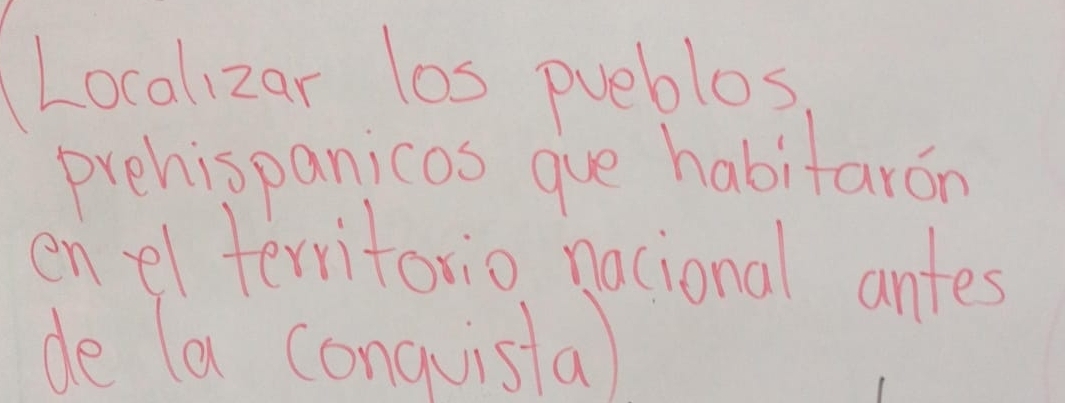 (Localizar los pueblos,
prehispanicos que habitarón
en el territorio nacional antes
de la conquista)